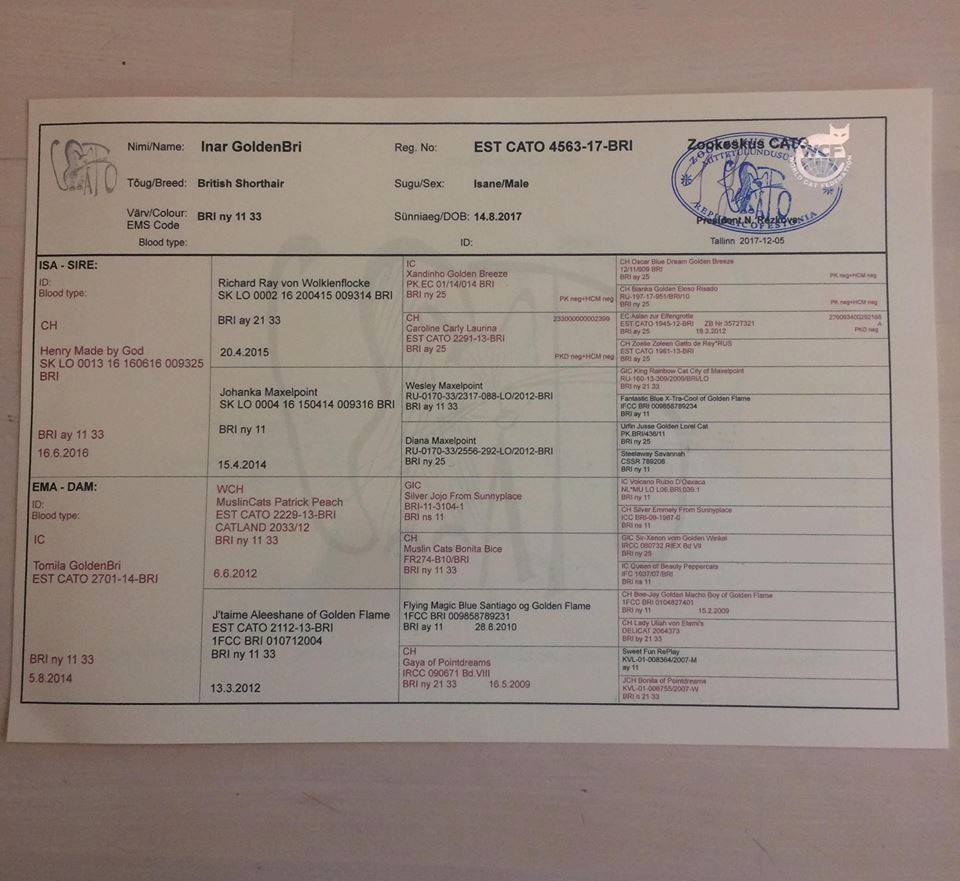 Nimi/Name: Inar GoldenBri
Reg. No: EST CATO 4563-17-BRI
Zookeskus CATO
WCF
WORLD CAT FEDERATION
Tõug/Breed: British Shorthair
Sugu/Sex: Isane/Male
Värv/Colour: BRI ny 11 33
EMS Code
Sünniaeg/DOB: 14.8.2017
President N. Rezkova
REPUBLIC OF ESTONIA
Blood type:
ID:
Tallinn 2017-12-05
ISA - SIRE:
ID:
Blood type:
CH
Henry Made by God
SK LO 0013 16 160616 009325
BRI
BRI ay 11 33
16.6.2016
Richard Ray von Wolklenflocke
SK LO 0002 16 200415 009314 BRI
BRI ay 21 33
20.4.2015
Johanka Maxelpoint
SK LO 0004 16 150414 009316 BRI
BRI ny 11
15.4.2014
IC
Xandinho Golden Breeze
PK.EC 01/14/014 BRI
BRI ny 25
PK neg+HCM neg
CH 233000000002399
Caroline Carly Laurina
EST CATO 2291-13-BRI
BRI ay 25
PKD neg+HCM neg
Wesley Maxelpoint
RU-0170-33/2317-088-LO/2012-BRI
BRI ay 11 33
Diana Maxelpoint
RU-0170-33/2556-292-LO/2012-BRI
BRI ny 25
CH Oscar Blue Dream Golden Breeze
12/11/609 BRI
BRI ay 25 PK neg+HCM neg
CH Bianka Golden Eloso Risado
RU-197-17-951/BRI/10
BRI ny 25 PK neg+HCM neg
EC Aslan zur Elfengrotte
EST CATO 1945-12-BRI ZB Nr 35727321
BRI ay 25 19.3.2012
PKD neg
CH Zoelie Zoleen Gatto de Rey*RUS
EST CATO 1961-13-BRI
BRI ay 25
GIC King Rainbow Cat City of Maxelpoint
RU-160-13-309/2009/BRI/LO
BRI ny 21 33
Fantastic Blue X-Tra-Cool of Golden Flame
IFCC BRI 009858789234
BRI ay 11
Urfin Jusse Golden Lorel Cat
PK.BRI/436/11
BRI ny 25
Steelaway Savannah
CSSR 789206
BRI ny 11
EMA - DAM:
ID:
Blood type:
IC
Tomila GoldenBri
EST CATO 2701-14-BRI
BRI ny 11 33
5.8.2014
WCH
MuslinCats Patrick Peach
EST CATO 2229-13-BRI
CATLAND 2033/12
BRI ny 11 33
6.6.2012
J'taime Aleeshane of Golden Flame
EST CATO 2112-13-BRI
1FCC BRI 010712004
BRI ny 11 33
13.3.2012
GIC
Silver Jojo From Sunnyplace
BRI-11-3104-1
BRI ns 11
CH
Muslin Cats Bonita Bice
FR274-B10/BRI
BRI ny 11 33
Flying Magic Blue Santiago og Golden Flame
1FCC BRI 009858789231
BRI ay 11 28.8.2010
CH
Gaya of Pointdreams
IRCC 090671 Bd.VIII
BRI ny 21 33 16.5.2009
IC Volcano Rubio D'Oaxaca
NL*MU LO L06.BRI.039.1
BRI ny 11
CH Silver Emmely From Sunnyplace
ICC BRI-09-1987-0
BRI ns 11
GIC Sir-Xenon vom Golden Winkel
IRCC 080732 RIEX Bd VII
BRI ny 25
IC Queen of Beauty Peppercats
IFC 1637/07/BRI
BRI ns 11
CH Bee-Jay Golden Macho Boy of Golden Flame
1FCC BRI 0104827401
BRI ny 11 15.2.2009
CH Lady Uliah von Elami's
DELICAT 2064373
BRI by 21 33
Sweet Fun RePlay
KVL-01-008364/2007-M
ay 11
JCH Bonita of Pointdreams
KVL-01-008755/2007-W
BRI n 21 33